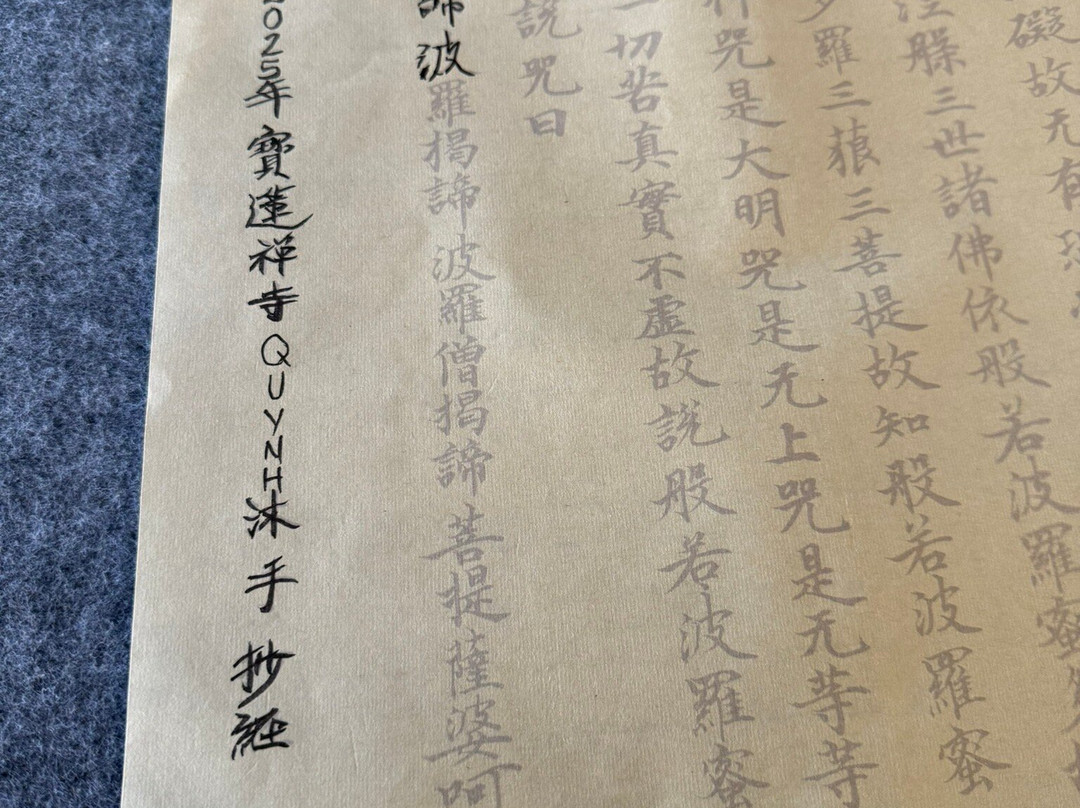 礙故无有恐
涅槃三世諸佛依般若波羅蜜
多羅三藐三菩提故知般若波羅蜜
神咒是大明咒是无上咒是无等等
一切苦真實不虛故說般若波羅蜜
說咒曰
諦波羅揭諦波羅僧揭諦菩提薩婆呵
2025年寶蓮禪寺QUYNH沐手抄經